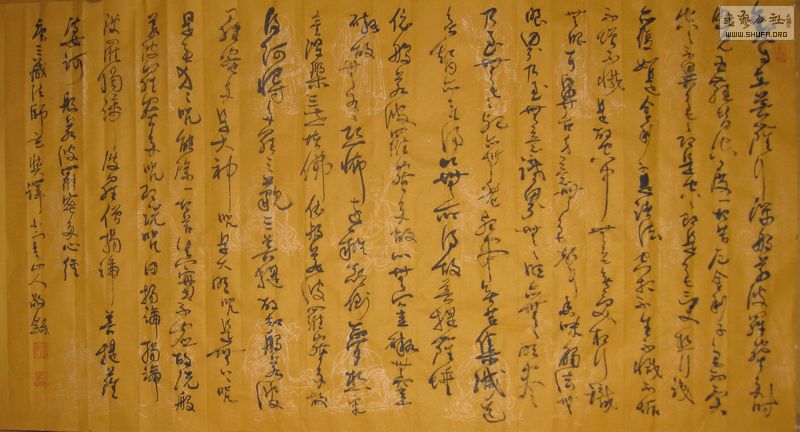 自在菩薩行深般若波羅蜜多時
照見五蘊皆空度一切苦厄舍利子色不異
空空不異色色即是空空即是色受想行識
亦復如是舍利子是諸法空相不生不滅不垢
不增不減是故空中無色無受想行識
無眼耳鼻舌身意無色聲香味觸法無
眼界乃至無意識界無無明亦無無明盡
乃至無老死亦無老死盡無苦集滅道
無智亦無得以無所得故菩提薩埵
依般若波羅蜜多故心無罣礙無罣
礙故無有恐怖遠離顛倒夢想究
竟涅槃三世諸佛依般若波羅蜜多故
得阿耨多羅三藐三菩提故知般若波
羅蜜多是大神咒是大明咒是無上咒
是無等等咒能除一切苦真實不虛故說般
若波羅蜜多咒即說咒曰揭諦揭諦
波羅揭諦 波羅僧揭諦 菩提薩
婆訶 般若波羅蜜多心經
唐三藏法師玄奘譯 山人敬錄
WWW.SHUFA.ORG